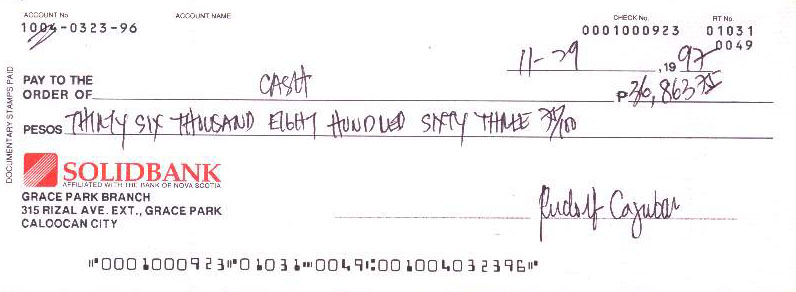 ACCOUNT No. ACCOUNT NAME CHECK No. RT No.
1004-0323-96 0001000923 01031
0049
11-29, 1997
PAY TO THE
ORDER OF CASH ₱36,863 75
PESOS THIRTY SIX THOUSAND EIGHT HUNDRED SIXTY THREE 75/100
DOCUMENTARY STAMPS PAID
SOLIDBANK
AFFILIATED WITH THE BANK OF NOVA SCOTIA
GRACE PARK BRANCH
315 RIZAL AVE. EXT., GRACE PARK
CALOOCAN CITY
Rudolf
⑈0001000923⑈01031⑉0049⑆001004032396⑈